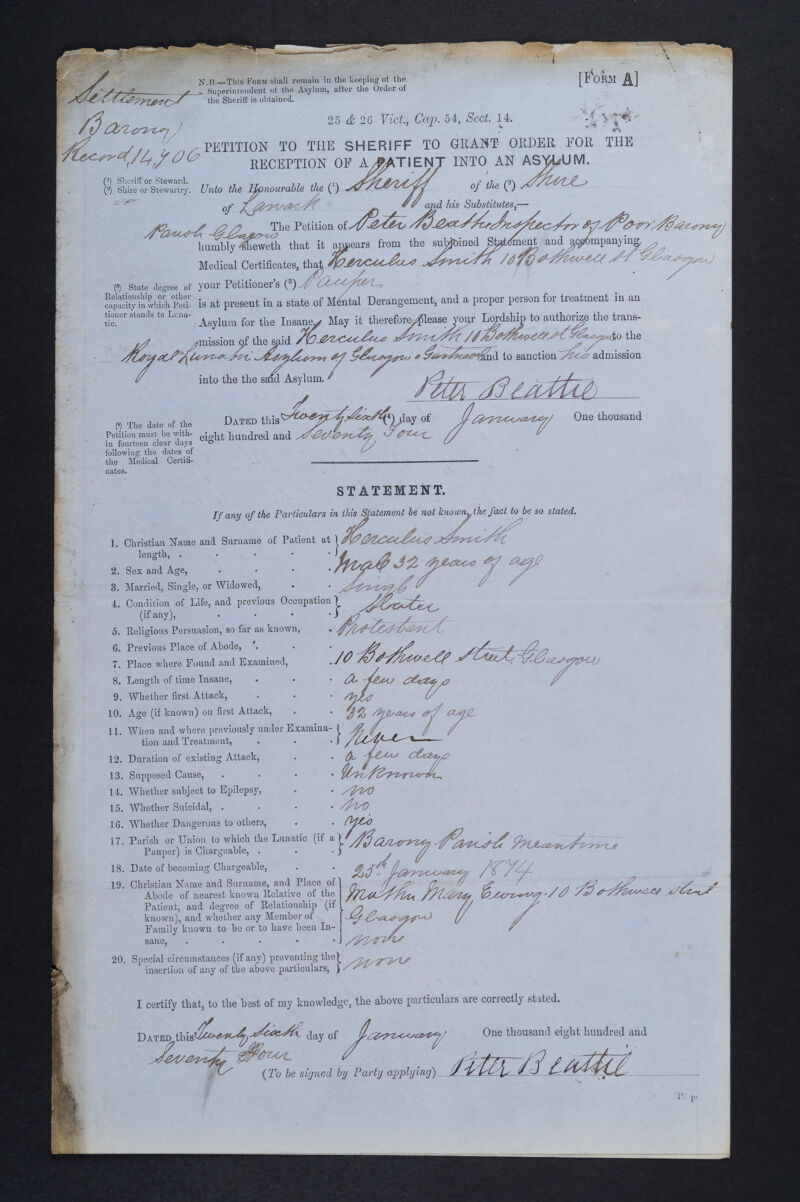 N.B.—This Form shall remain in the keeping of the
Superintendent of the Asylum, after the Order of
the Sheriff is obtained.
[Form A]
Settlement
Barony
Record, 14,906
25 & 26 Vict., Cap. 54, Sect. 14.
PETITION TO THE SHERIFF TO GRANT ORDER FOR THE
RECEPTION OF A PATIENT INTO AN ASYLUM.
(¹) Sheriff or Steward.
(²) Shire or Stewartry.
Unto the Honourable the (¹) Sheriff of the (²) Shire
of Lanark and his Substitutes,—
The Petition of Peter Beattie Inspector of Poor Barony
Parish Glasgow
humbly sheweth that it appears from the subjoined Statement and accompanying
Medical Certificates, that Herculus Smith 10 Bothwell st Glasgow
(³) State degree of
Relationship or other
capacity in which Peti-
tioner stands to Luna-
tic.
your Petitioner's (³) Pauper
is at present in a state of Mental Derangement, and a proper person for treatment in an
Asylum for the Insane. May it therefore please your Lordship to authorize the trans-
mission of the said Herculus Smith 10 Bothwell st Glasgow to the
Royal Lunatic Asylum of Glasgow Gartnavel and to sanction his admission
into the the said Asylum.
Peter Beattie
(⁴) The date of the
Petition must be with-
in fourteen clear days
following the dates of
the Medical Certifi-
cates.
Dated this Twenty Sixth (⁴) day of January One thousand
eight hundred and Seventy Four
STATEMENT.
If any of the Particulars in this Statement be not known, the fact to be so stated.
1. Christian Name and Surname of Patient at
length, . Herculus Smith
2. Sex and Age, Male 32 years of age
3. Married, Single, or Widowed, Single
4. Condition of Life, and previous Occupation
(if any), Slater
5. Religious Persuasion, so far as known, Protestant
6. Previous Place of Abode,
7. Place where Found and Examined, 10 Bothwell Street Glasgow
8. Length of time Insane, a few days
9. Whether first Attack, yes
10. Age (if known) on first Attack, 32 years of age
11. When and where previously under Examina-
tion and Treatment, Never
12. Duration of existing Attack, a few days
13. Supposed Cause, Unknown
14. Whether subject to Epilepsy, no
15. Whether Suicidal, no
16. Whether Dangerous to others, yes
17. Parish or Union to which the Lunatic (if a
Pauper) is Chargeable, Barony Parish Meantime
18. Date of becoming Chargeable, 25th January 1874
19. Christian Name and Surname, and Place of
Abode of nearest known Relative of the
Patient, and degree of Relationship (if
known), and whether any Member of
Family known to be or to have been In-
sane,
Mother Mary Ewing 10 Bothwell street
Glasgow
none
20. Special circumstances (if any) preventing the
insertion of any of the above particulars, none
I certify that, to the best of my knowledge, the above particulars are correctly stated.
Dated this Twenty Sixth day of January One thousand eight hundred and
Seventy Four
(To be signed by Party applying) Peter Beattie
P. P.